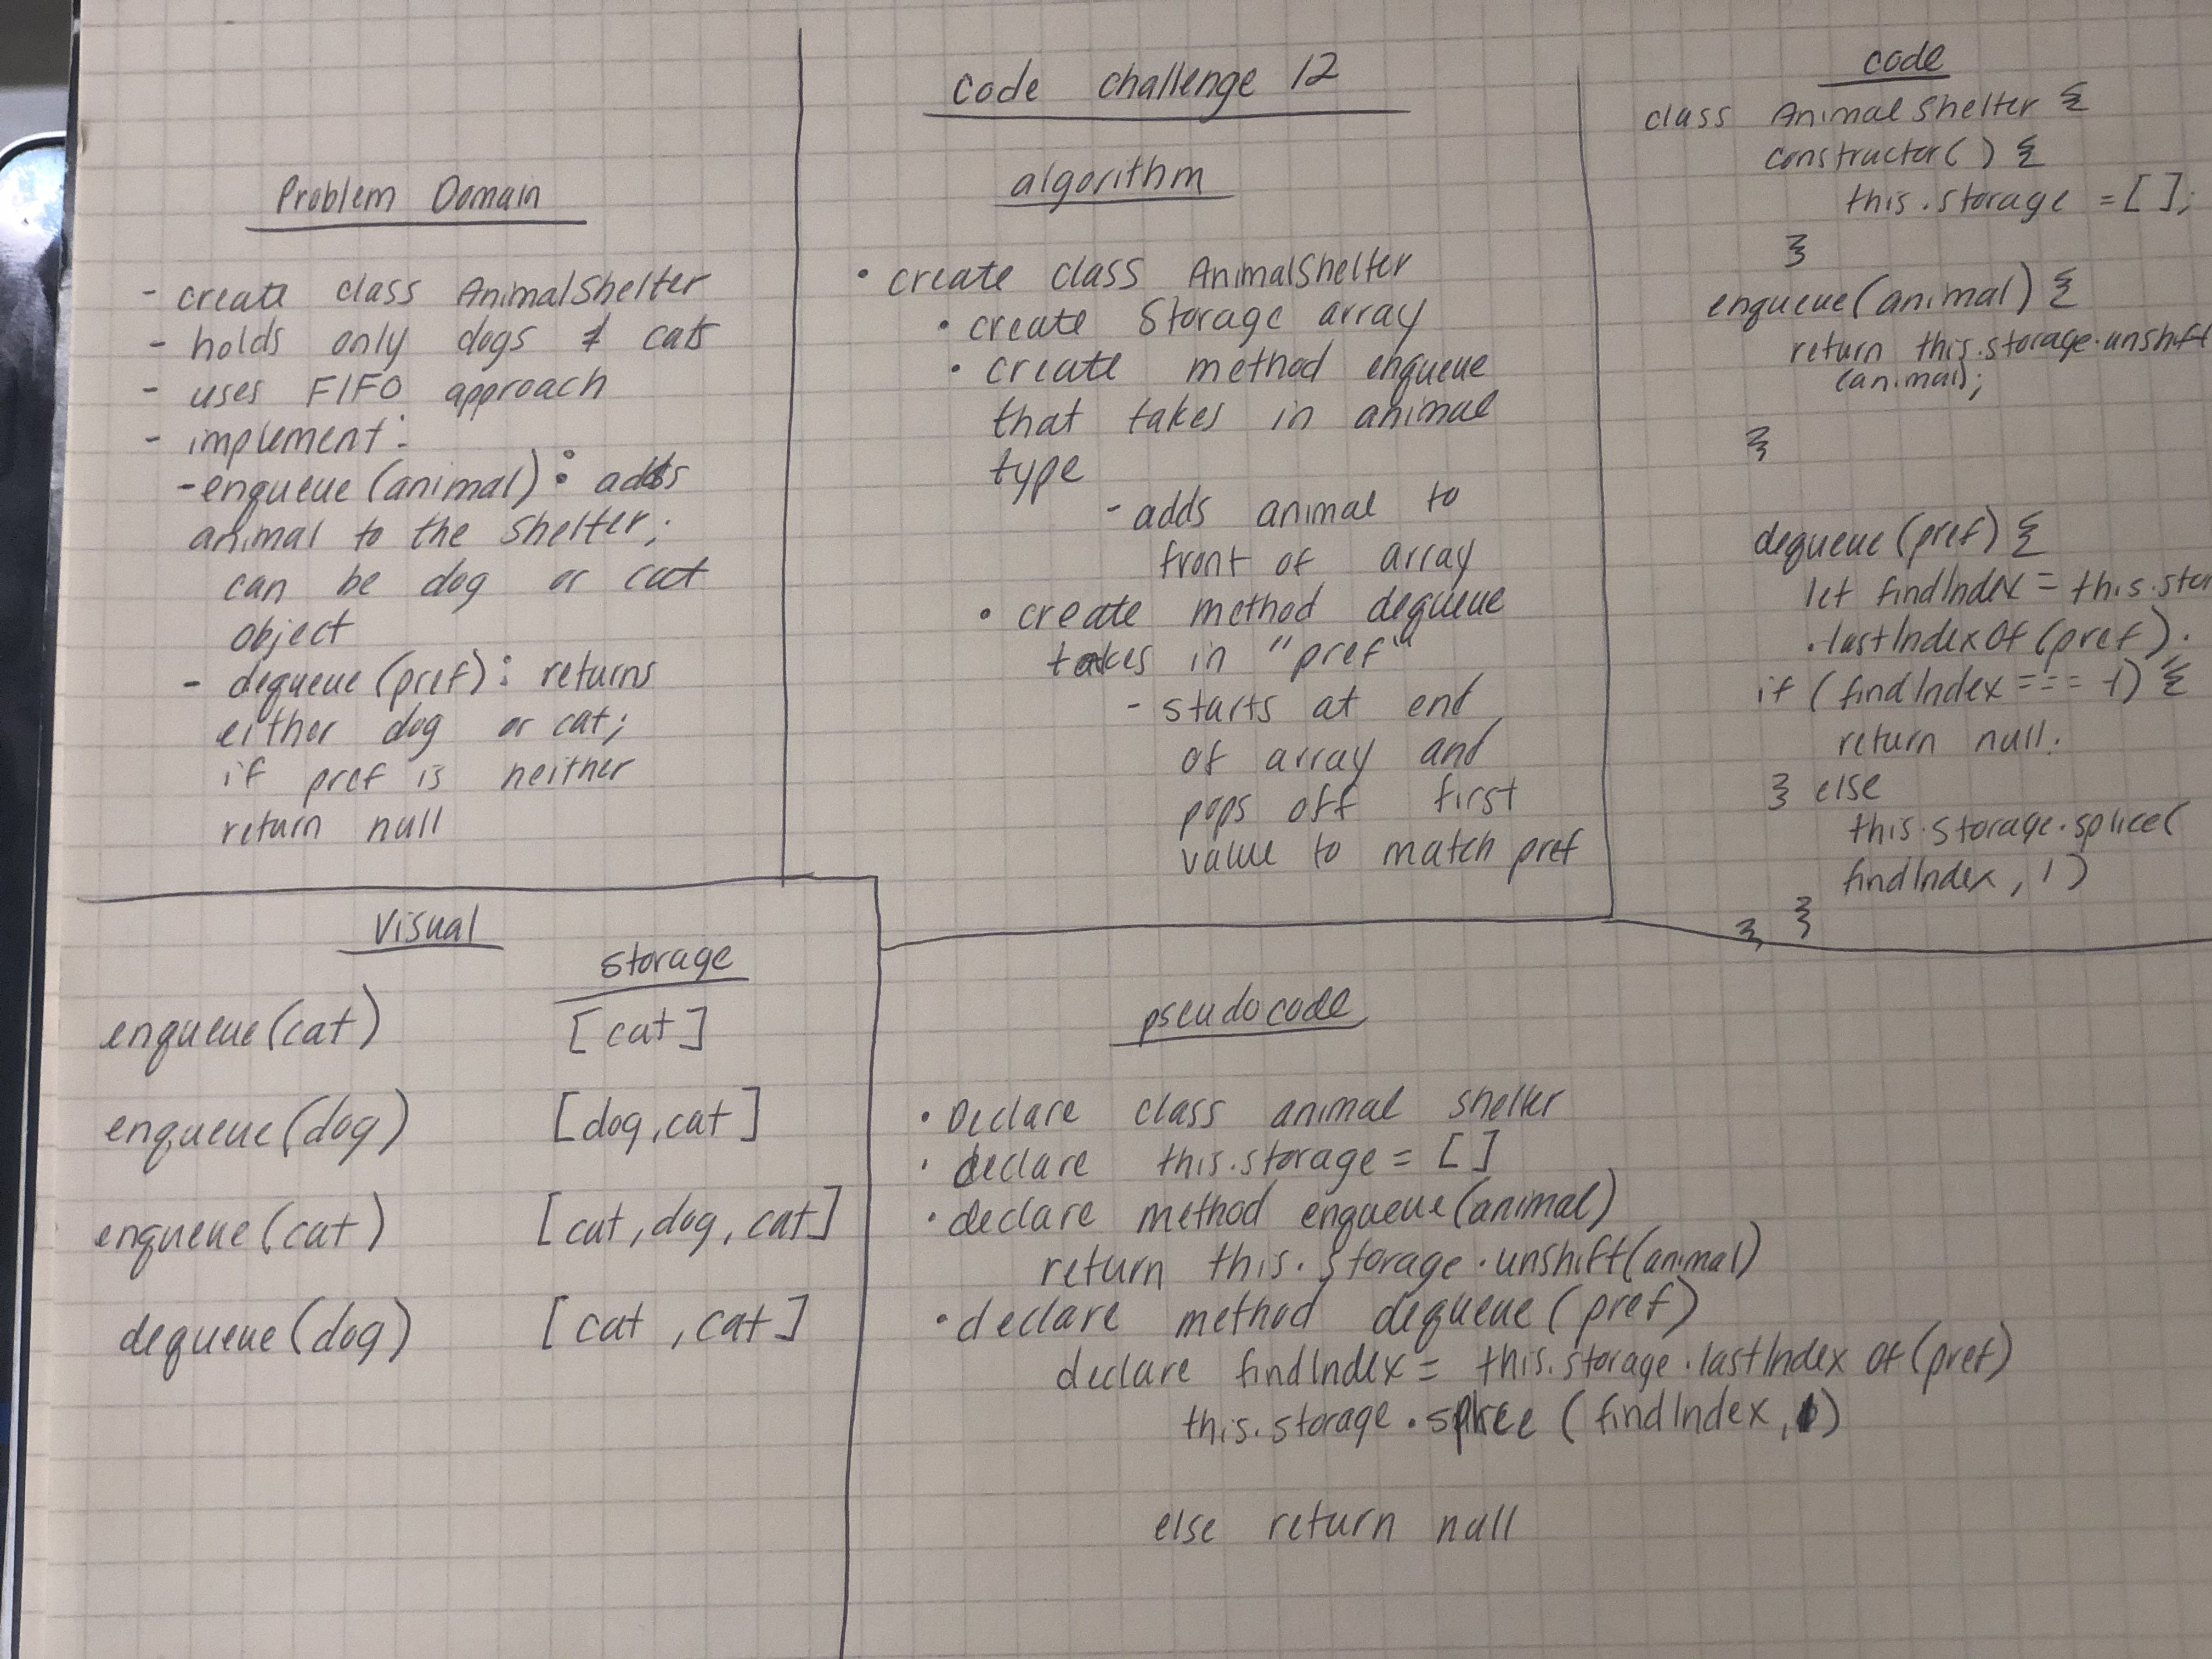 Code challenge 12
Problem Domain
- create class AnimalShelter
- holds only dogs & cats
- uses FIFO approach
- implement:
- enqueue (animal) : adds
animal to the shelter;
can be dog or cat
object
- dequeue (pref) : returns
either dog or cat;
if pref is neither
return null
algorithm
• create class AnimalShelter
• create Storage array
• create method enqueue
that takes in animal
type
- adds animal to
front of array
• create method dequeue
takes in "pref"
- starts at end
of array and
pops off first
value to match pref
code
class AnimalShelter {
constructor() {
this.storage = [];
}
enqueue(animal) {
return this.storage.unshift
(animal);
}
dequeue(pref) {
let findIndex = this.stor
.lastIndexOf(pref);
if (findIndex === -1) {
return null;
} else
this.storage.splice(
findIndex, 1)
}
}
Visual
storage
enqueue(cat) [cat]
enqueue(dog) [dog, cat]
enqueue(cat) [cat, dog, cat]
dequeue(dog) [cat, cat]
pseudocode
• Declare class animal shelter
• declare this.storage = []
• declare method enqueue(animal)
return this.storage.unshift(animal)
• declare method dequeue(pref)
declare findIndex = this.storage.lastIndex Of(pref)
this.storage.splice (findIndex, 1)
else return null